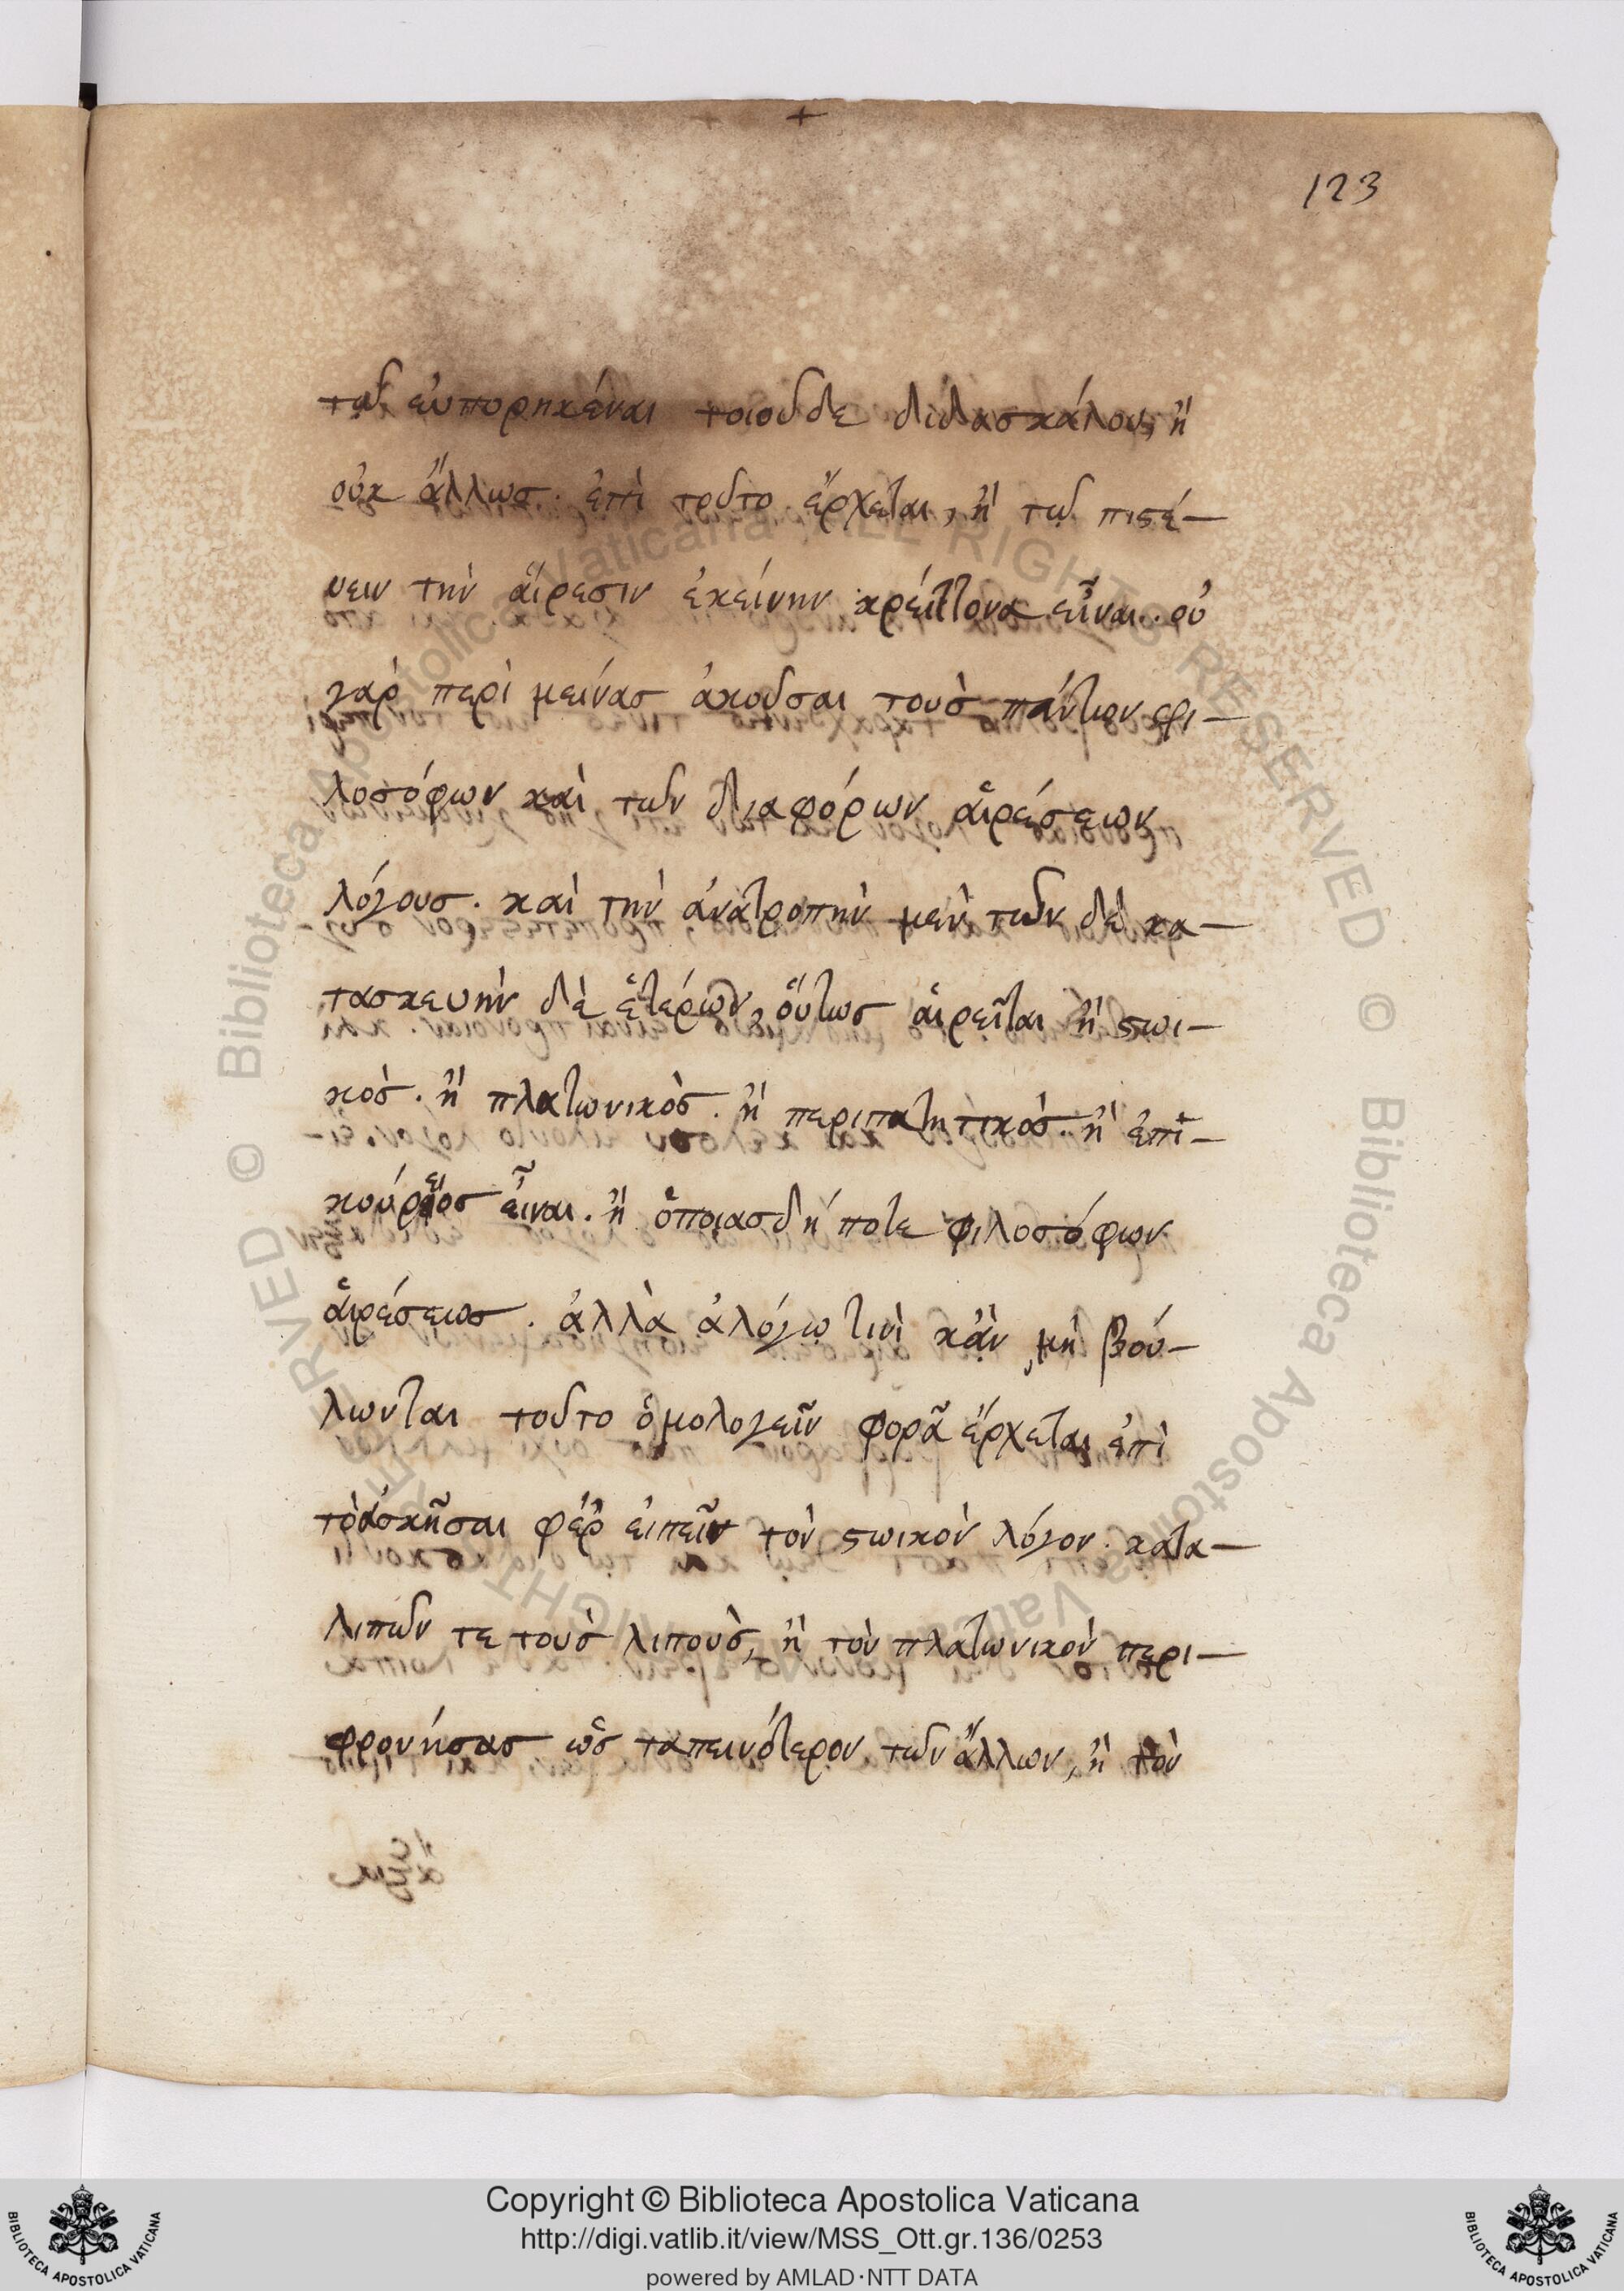 123
τῶ εὐπορηκέναι τοιοῦδε διδασκάλου, ἢ
οὐκ ἄλλωσ. ἐπὶ τοῦτο ἔρχεται, ἢ τῶ πιστέ-
υειν τὴν αἵρεσιν ἐκείνην κρείττονα εἶναι. οὐ
γὰρ περὶ μείνασ ἀκοῦσαι τοὺσ πάντων φι-
λοσόφων καὶ τῶν διαφόρων αἱρέσεων
λόγουσ. καὶ τὴν ἀνατροπὴν μὲν τῶν δὲ κα-
τασκευὴν δὲ ἑτέρων, οὕτωσ αἱρεῖται ἢ στωι-
κὸσ. ἢ πλατωνικὸσ. ἢ περιπατητικὸσ. ἢ ἐπι-
κούρειοσ εἶναι. ἢ ὁποιασδήποτε φιλοσόφων
αἱρέσεωσ. ἀλλὰ ἀλόγω τινὶ κἂν μὴ βού-
λωνται τοῦτο ὁμολογεῖν φορᾶ ἔρχεται ἐπὶ
τὸ ἀσκῆσαι φέρ εἰπεῖν τὸν στωικὸν λόγον. κατα-
λιπῶν τε τοὺσ λιποὺσ, ἢ τὸν πλατωνικὸν περι-
φρονήσασ ὡσ ταπεινότερον τῶν ἄλλων, ἢ τὸν
Copyright © Biblioteca Apostolica Vaticana
http://digi.vatlib.it/view/MSS_Ott.gr.136/0253
powered by AMLAD·NTT DATA
BIBLIOTECA APOSTOLICA VATICANA
BIBLIOTECA APOSTOLICA VATICANA
© Biblioteca Apostolica Vaticana ALL RIGHTS RESERVED © Biblioteca Apostolica Vaticana ALL RIGHTS RESERVED